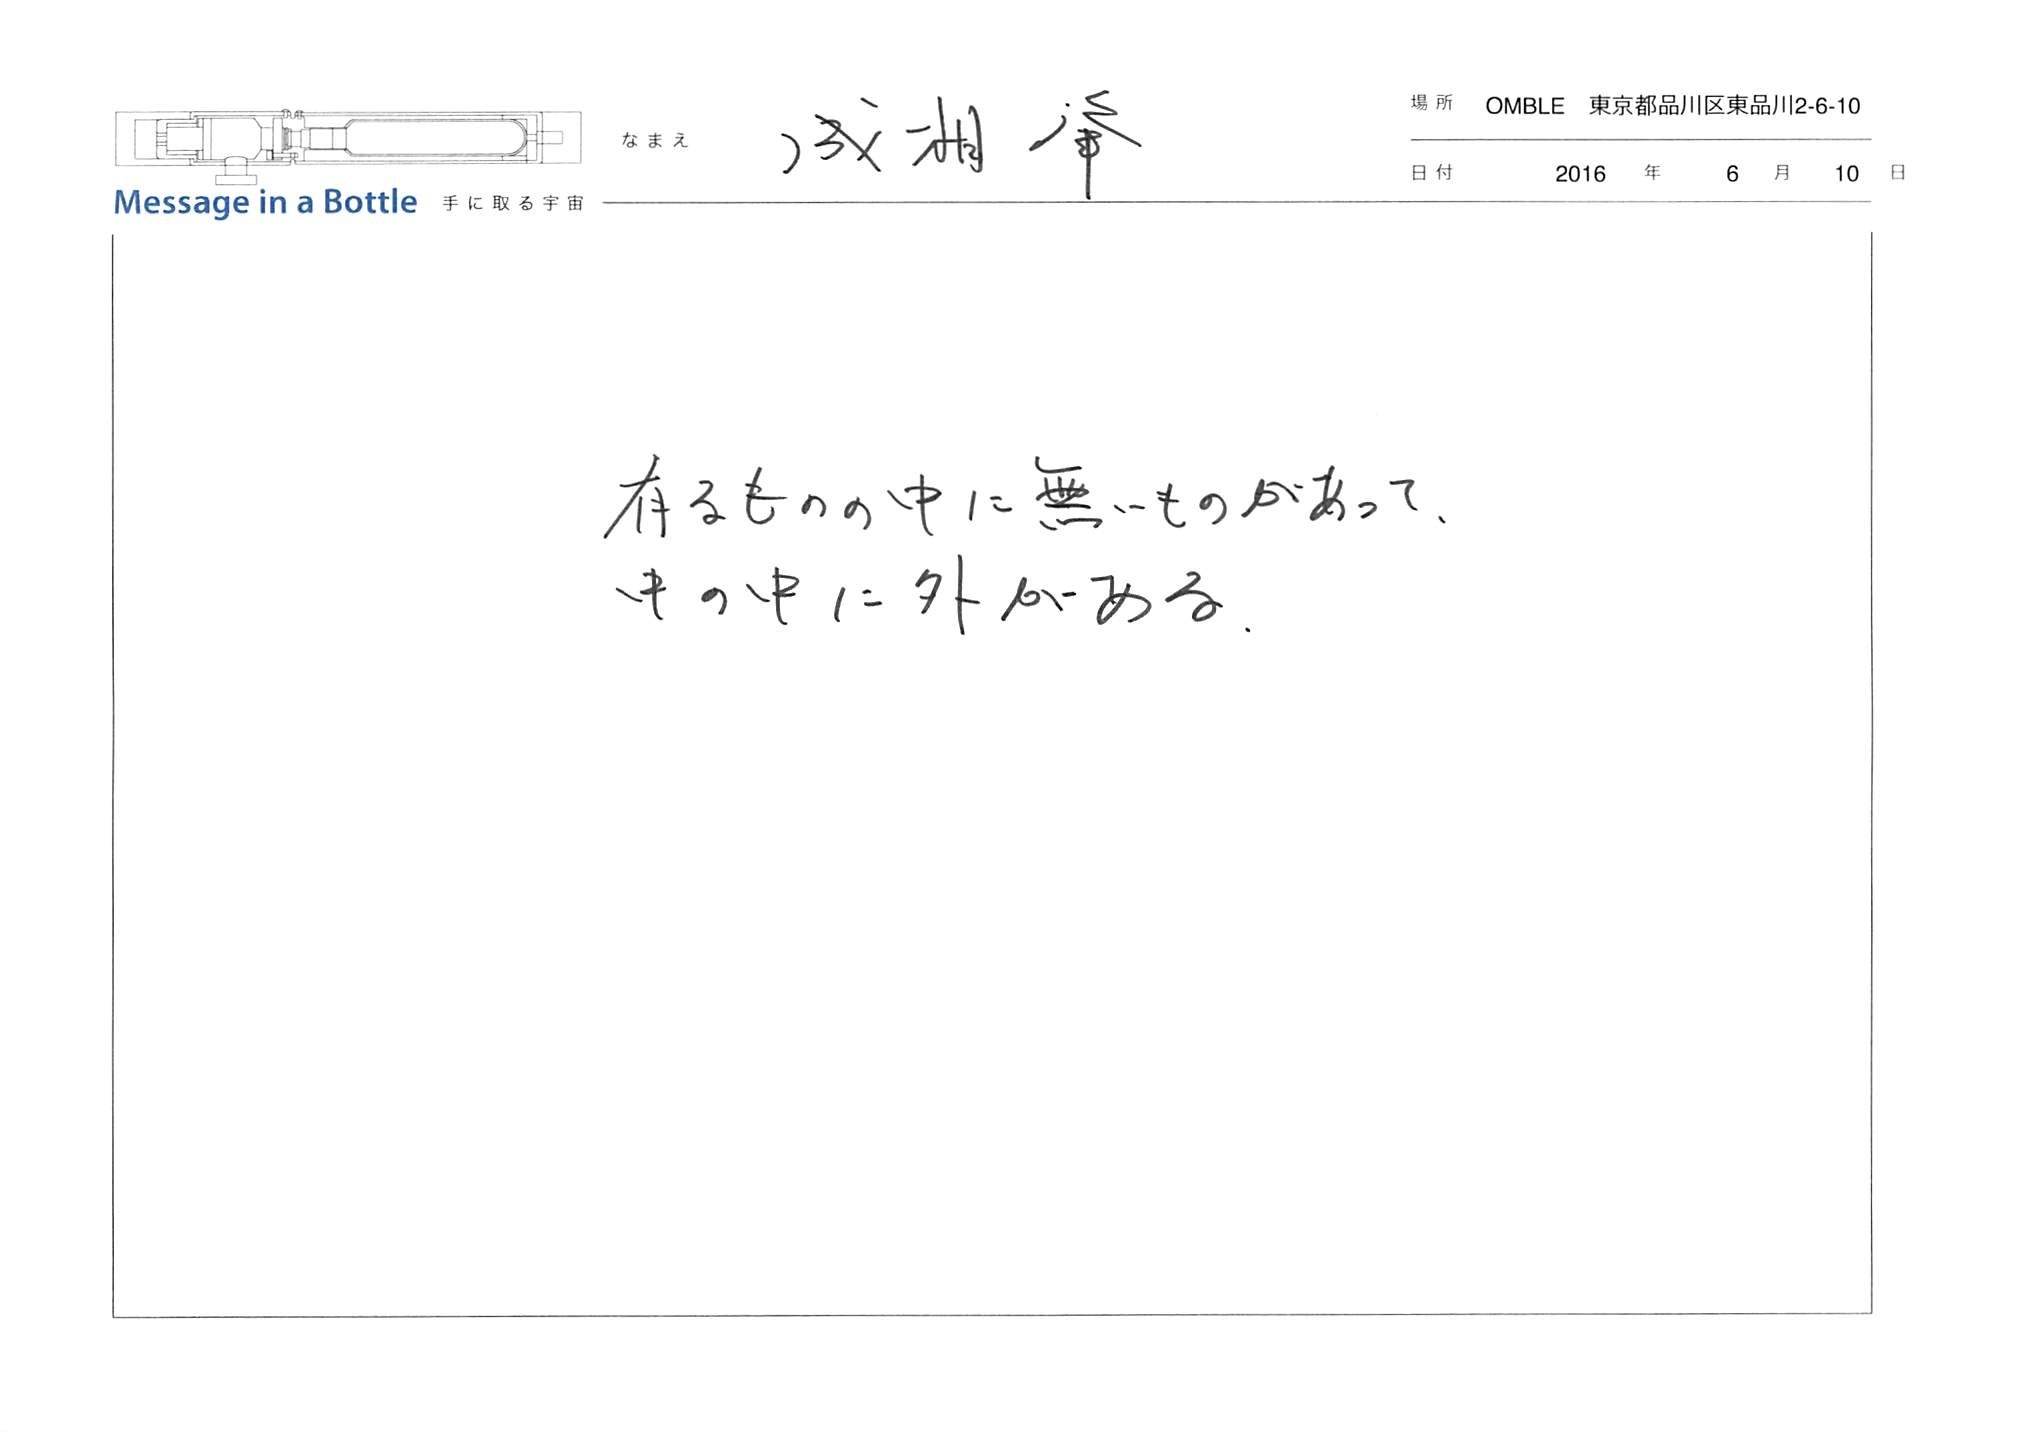 なまえ 成相肇
場所 OMBLE 東京都品川区東品川2-6-10
日付 2016 年 6 月 10 日
Message in a Bottle 手に取る宇宙
有るものの中に無いものがあって、
中の中に外がある.